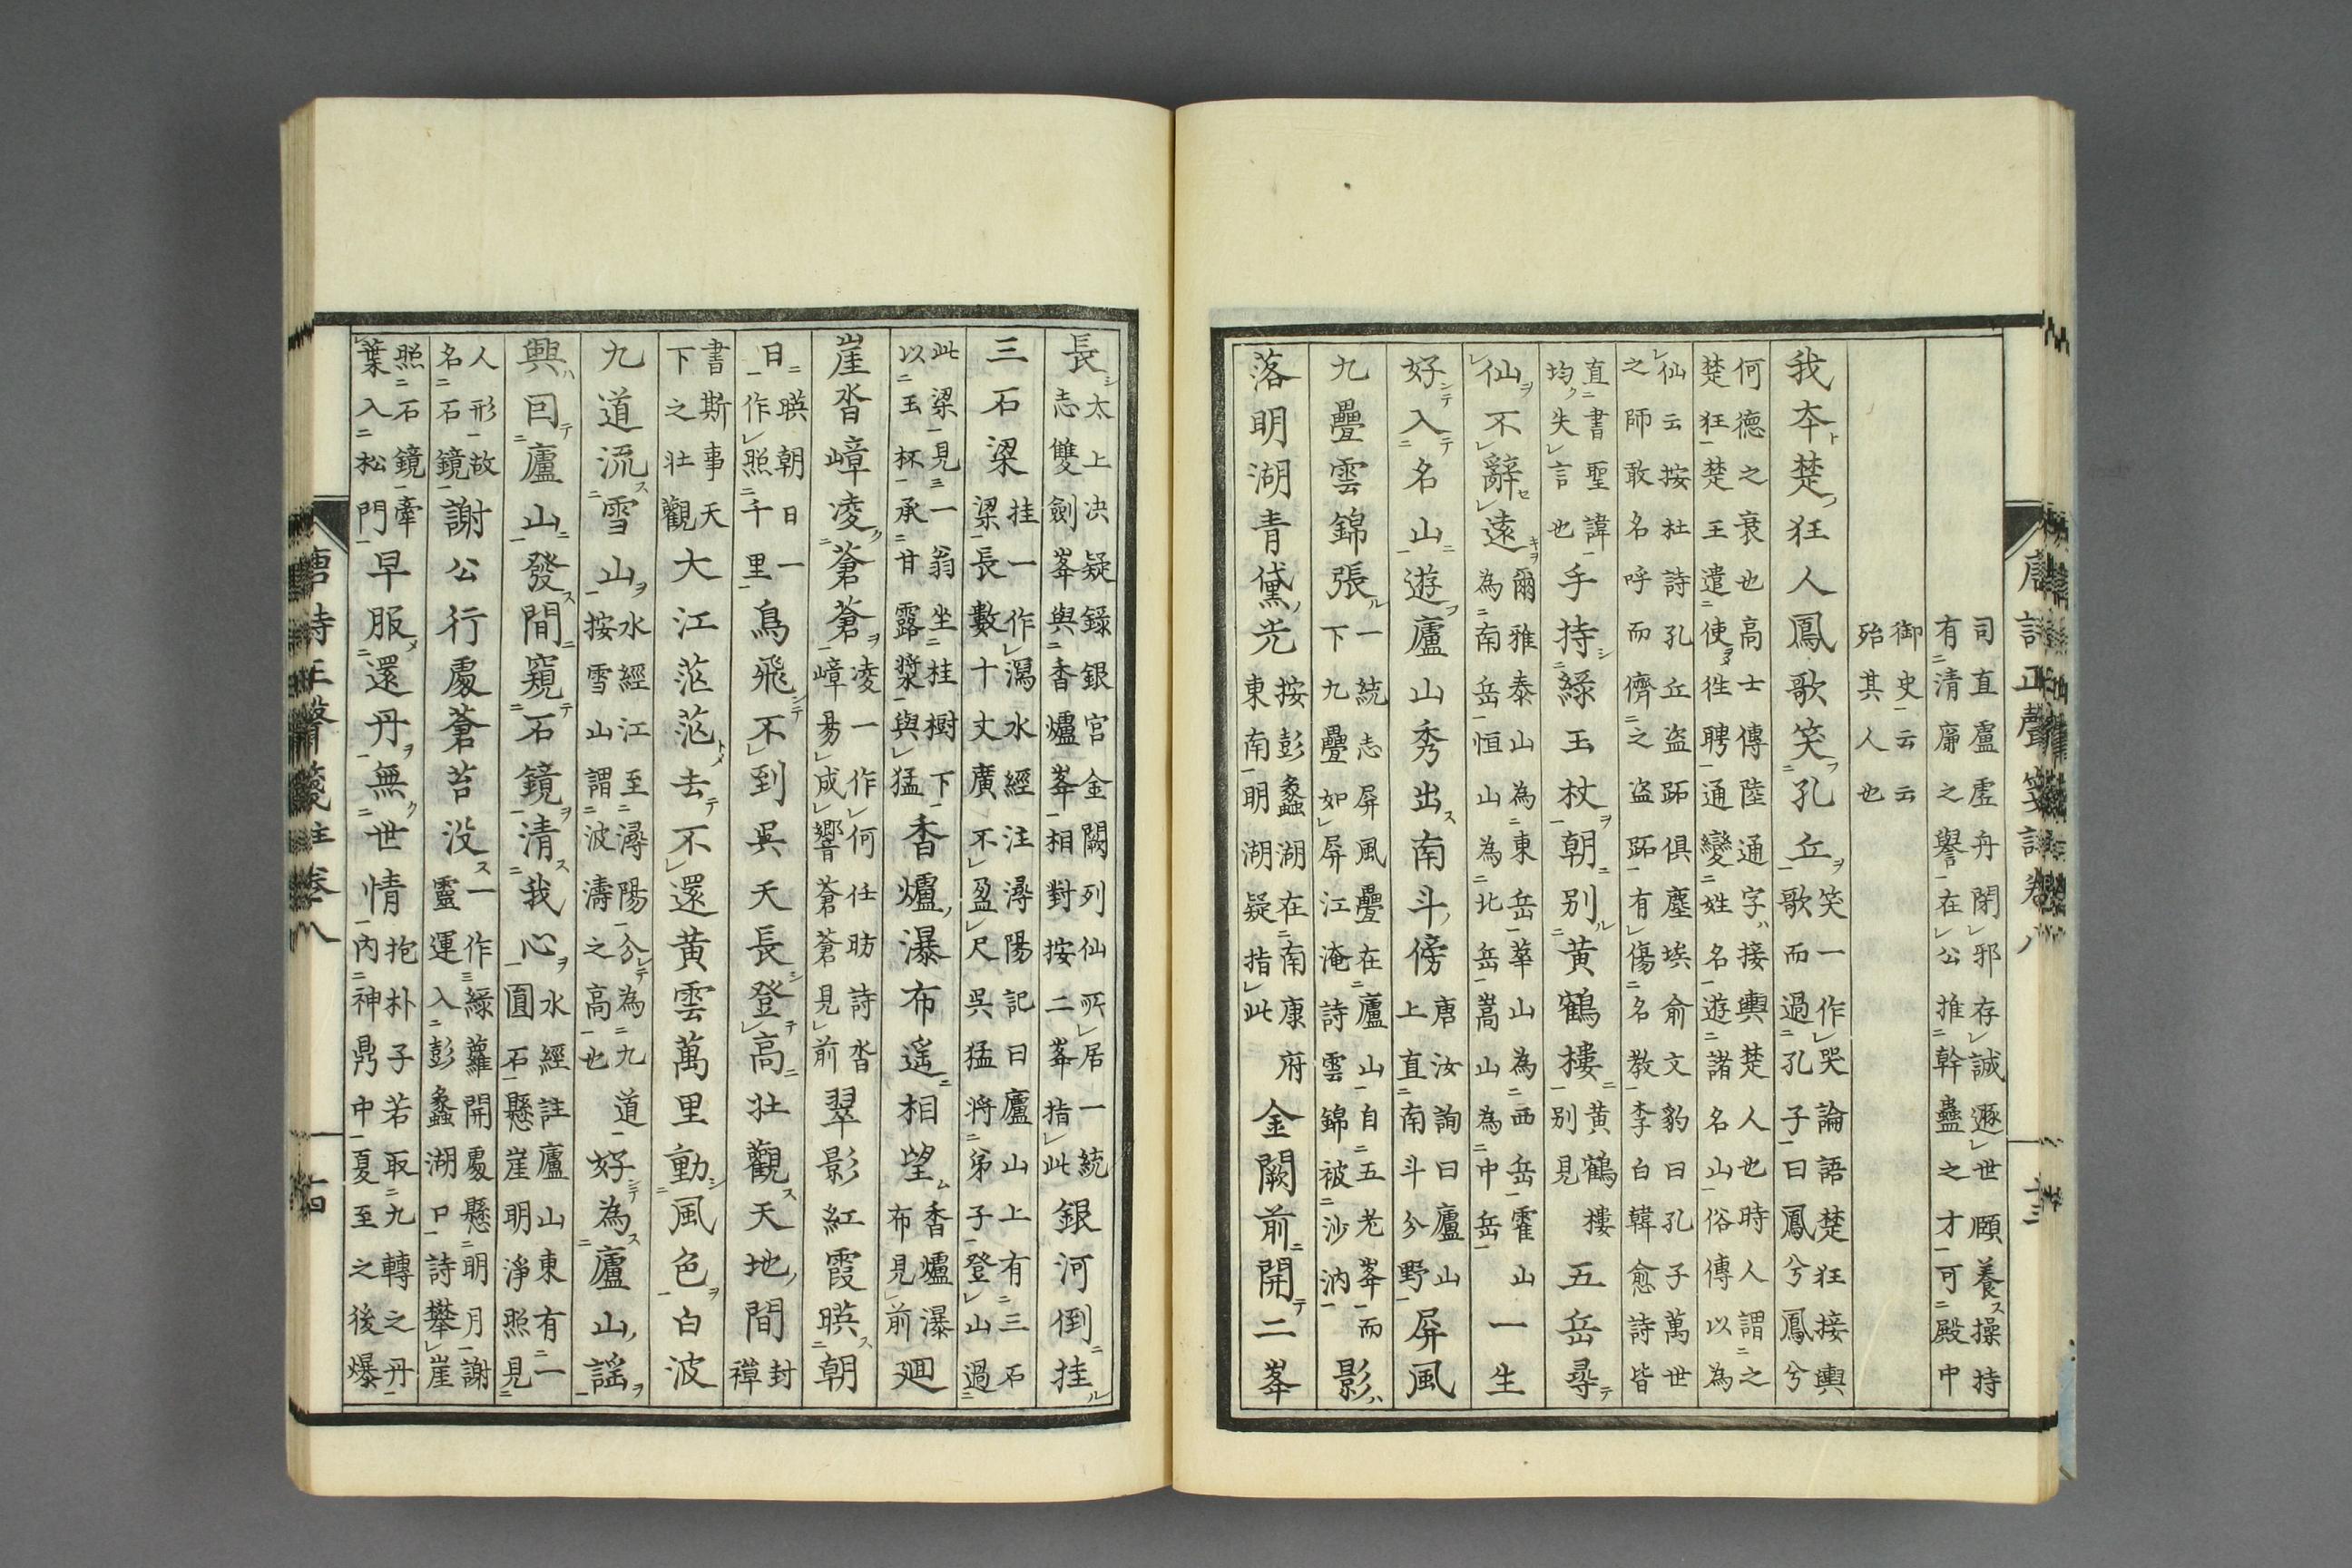 唐詩正聲箋註卷八 十三
司直盧虗舟閉邪存誠遯世頤養操持
有清廉之譽在公推幹蠱之才可殿中
御史云云
殆其人也
我本楚狂人鳳歌笑孔丘笑一作哭論語楚狂接輿
歌而過孔子曰鳳兮鳳兮
何德之衰也高士傳陸通字接輿楚人也時人謂之
楚狂楚王遣使徃聘通變姓名遊諸名山俗傳以為
仙云按杜詩孔丘盗跖俱塵埃俞文豹曰孔子萬世
之師敢名呼而儕之盗跖有傷名教李白韓愈詩皆
直書聖諱
均失言也手持綠玉杖朝别黄鶴樓黄鶴樓
别見五岳尋
仙不辭遠爾雅泰山為東岳華山為西岳霍山
為南岳恒山為北岳嵩山為中岳一生
好入名山遊廬山秀出南斗傍唐汝詢曰廬山
上直南斗分野屏風
九疊雲錦張一統志屏風疊在廬山自五老峯而
下九疊如屏江淹詩雲錦被沙汭影
落明湖青黛光按彭蠡湖在南康府
東南明湖疑指此金闕前開二峯
長太上决疑錄銀宮金闕列仙所居一統
志雙劍峯與香爐峯相對按二峯指此銀河倒挂
三石梁挂一作瀉水經注潯陽記曰廬山上有三石
梁長數十丈廣不盈尺吳猛將弟子登山過
此梁見一翁坐桂樹下
以玉杯承甘露漿與猛香爐瀑布遥相望香爐瀑
布見前廻
崖沓嶂凌蒼蒼凌一作何任昉詩沓
嶂易成響蒼蒼見前翠影紅霞暎朝
日暎朝日一
作照千里鳥飛不到吳天長登高壯觀天地間封
禪
書斯事天
下之壯觀大江茫茫去不還黄雲萬里動風色白波
九道流雪山水經江至潯陽分為九道
按雪山謂波濤之高也好為廬山謡
興因廬山發間窺石鏡清我心水經註廬山東有一
圓石懸崖明淨照見
人形故
名石鏡謝公行處蒼苔没一作綠蘿開處懸明月謝
靈運入彭蠡湖口詩攀崖
照石鏡牽
葉入松門早服還丹無世情抱朴子若取九轉之丹
内神鼎中夏至之後爆
唐詩正聲箋註卷八 十四